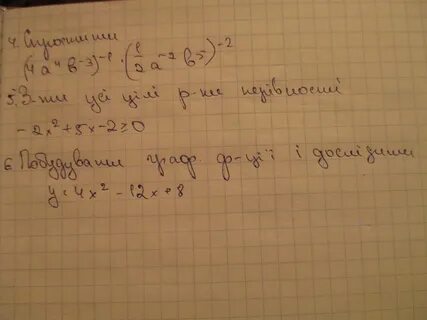 4. Спростити
(4a⁴b⁻³)⁻¹ · (1/2 a⁻² b⁵)⁻²
5. З-ти усі цілі р-ки нерівності
-2x²+5x-2≥0
6. Побудувати граф ф-ції і дослідити
y=4x²-12x+8